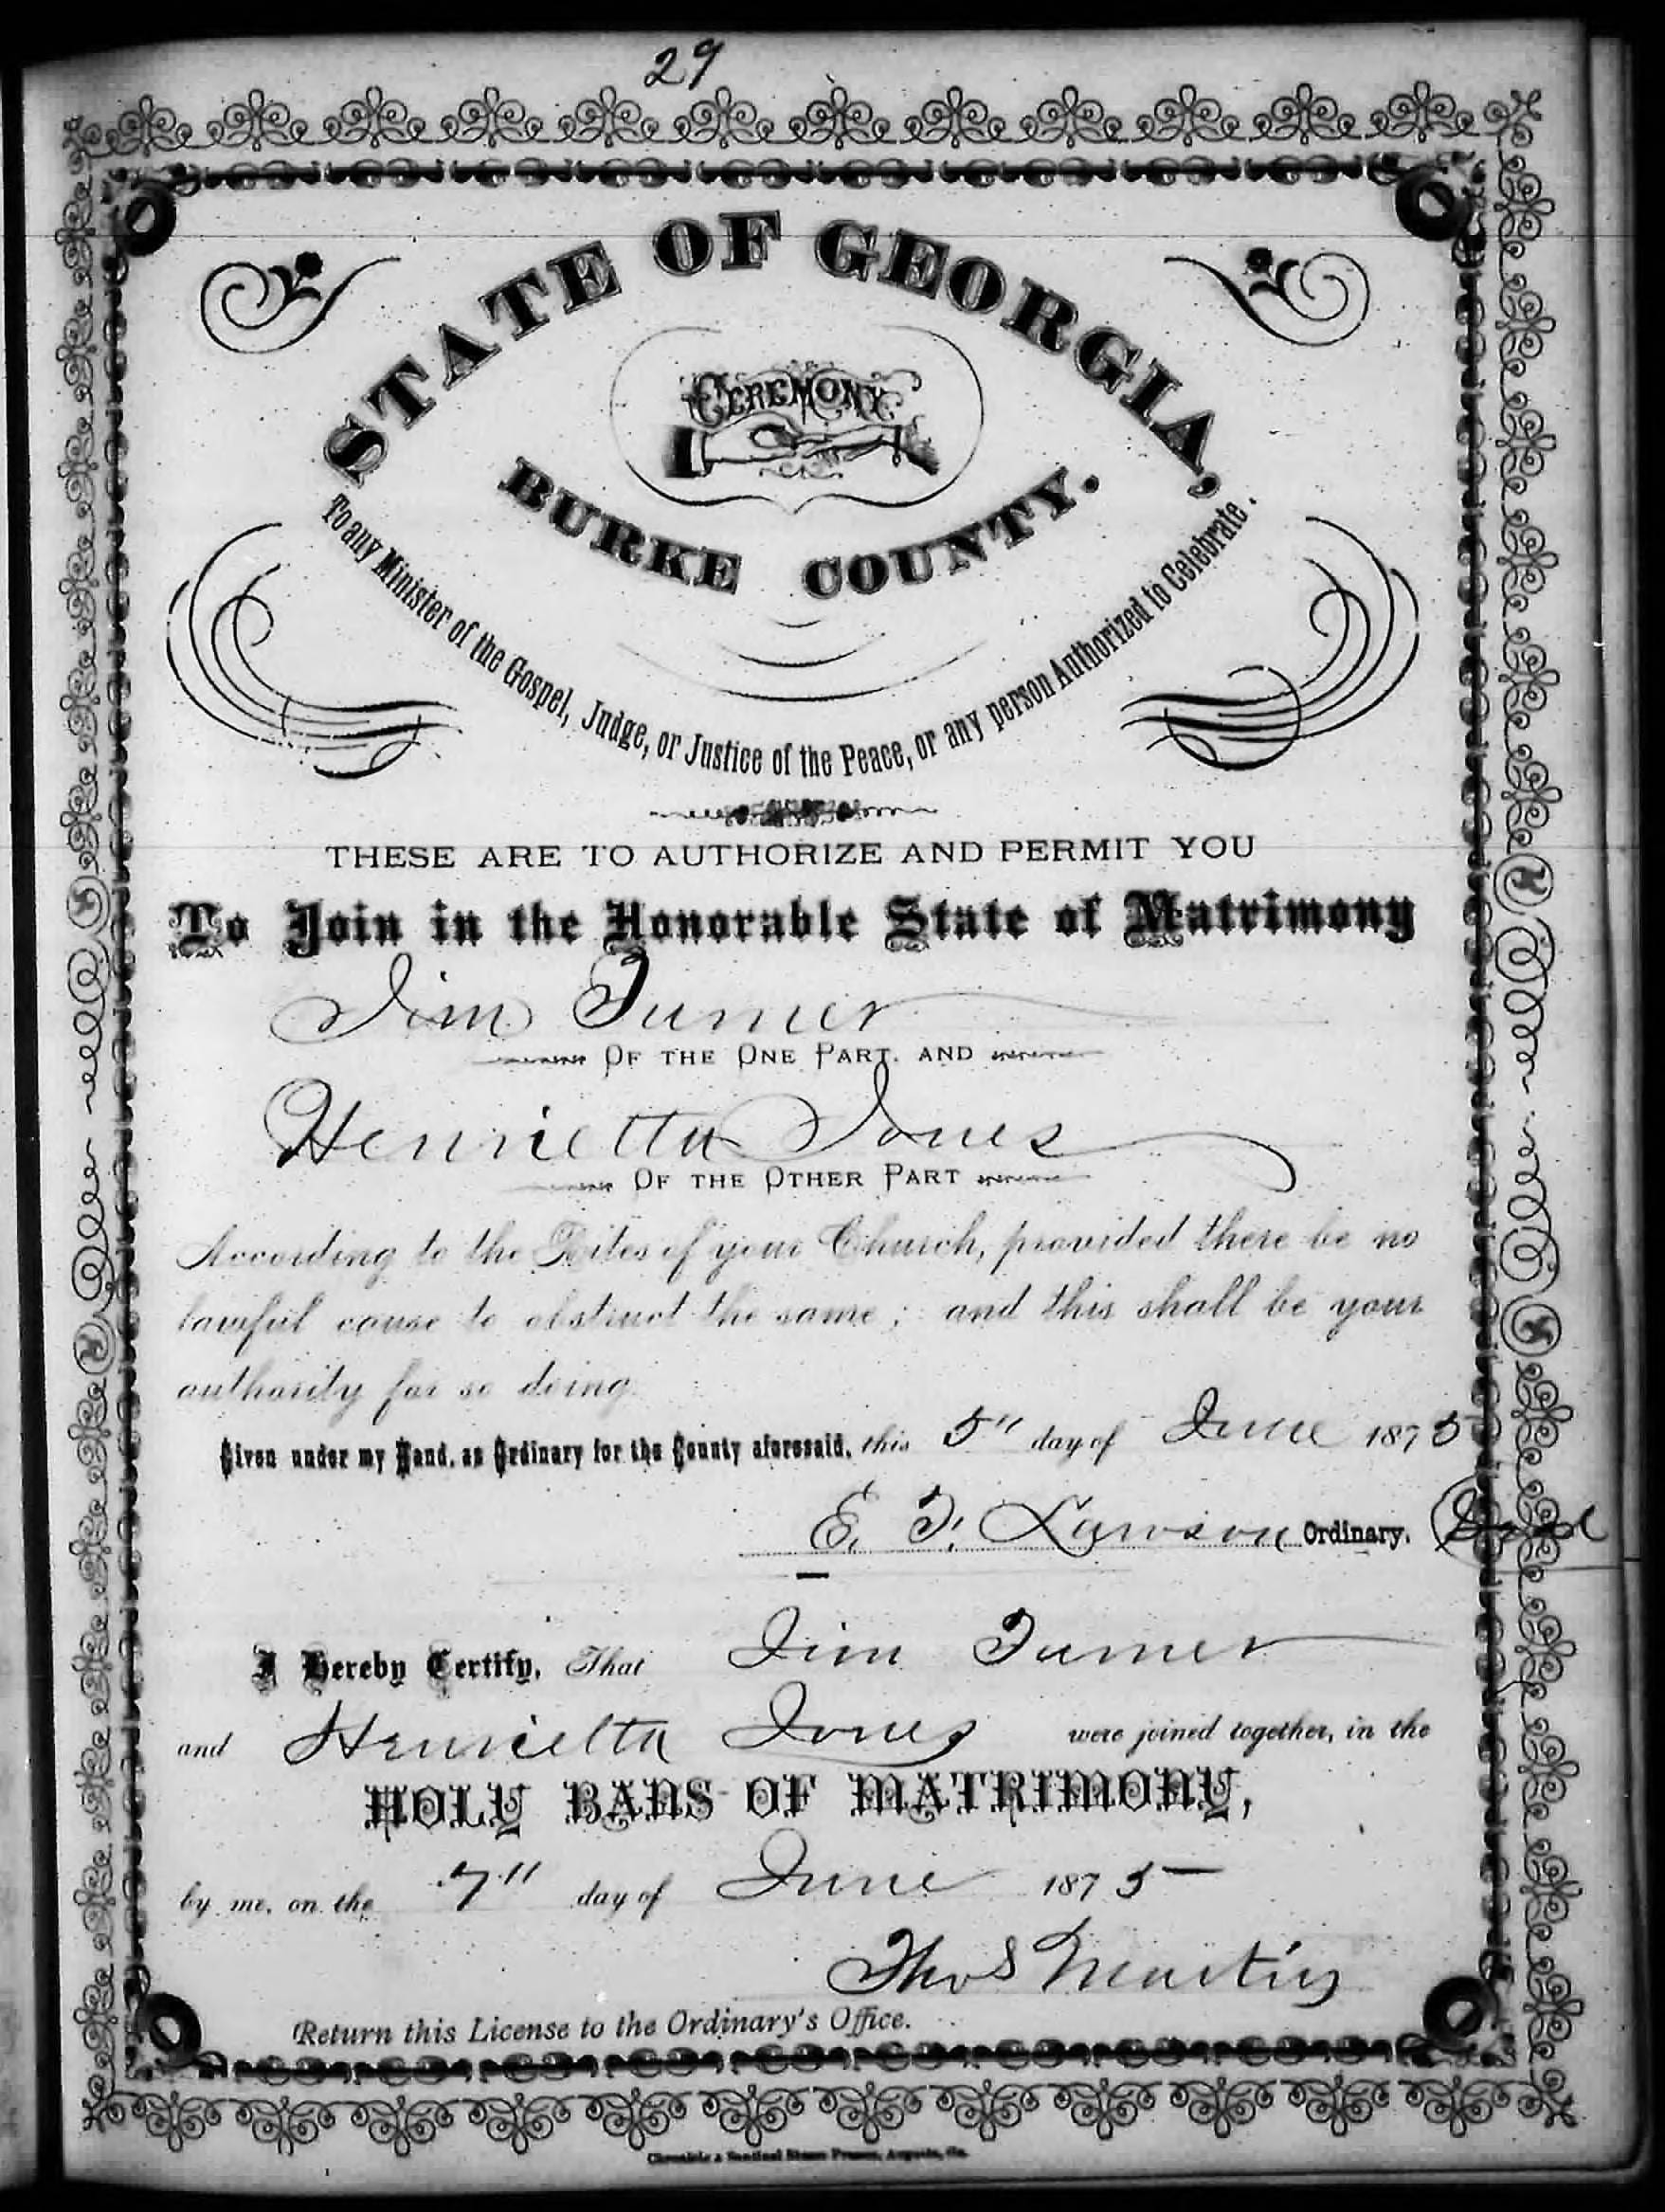 29
STATE OF GEORGIA,
CEREMONY
BURKE COUNTY.
To any Minister of the Gospel, Judge, or Justice of the Peace, or any person Authorized to Celebrate.
THESE ARE TO AUTHORIZE AND PERMIT YOU
To Join in the Honorable State of Matrimony
Jim Turner
OF THE ONE PART. AND
Henrietta Jones
OF THE OTHER PART
According to the Rites of your Church, provided there be no
lawful cause to obstruct the same; and this shall be your
authority for so doing.
Given under my Hand, as Ordinary for the County aforesaid, this 5" day of June 1875
E. F. Lawson Ordinary. Seal
I Hereby Certify, That Jim Turner
and Henrietta Jones were joined together, in the
HOLY BANS OF MATRIMONY,
by me, on the 7" day of June 1875
Thos Martin
Return this License to the Ordinary's Office.
Chronicle & Sentinel Steam Presses, Augusta, Ga.